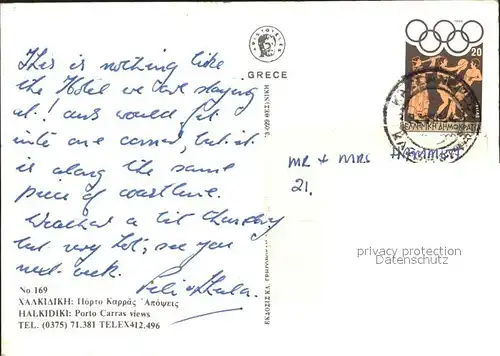 This is nothing like
the Hotel we are staying
at! ours would fit
into one corner, but it
is along the same
piece of coastline.
Weather a bit thundery
but very hot; see you
next week.
No 169
ΧΑΛΚΙΔΙΚΗ: Πόρτο Καρράς Ἀπόψεις
HALKIDIKI: Porto Carras views
TEL. (0375) 71.381 TELEX412.496
GRECE
20
ΕΛΛΗΝΙΚΗ ΔΗΜΟΚΡΑΤΙΑ
MR + MRS
21,
privacy protection
Datenschutz